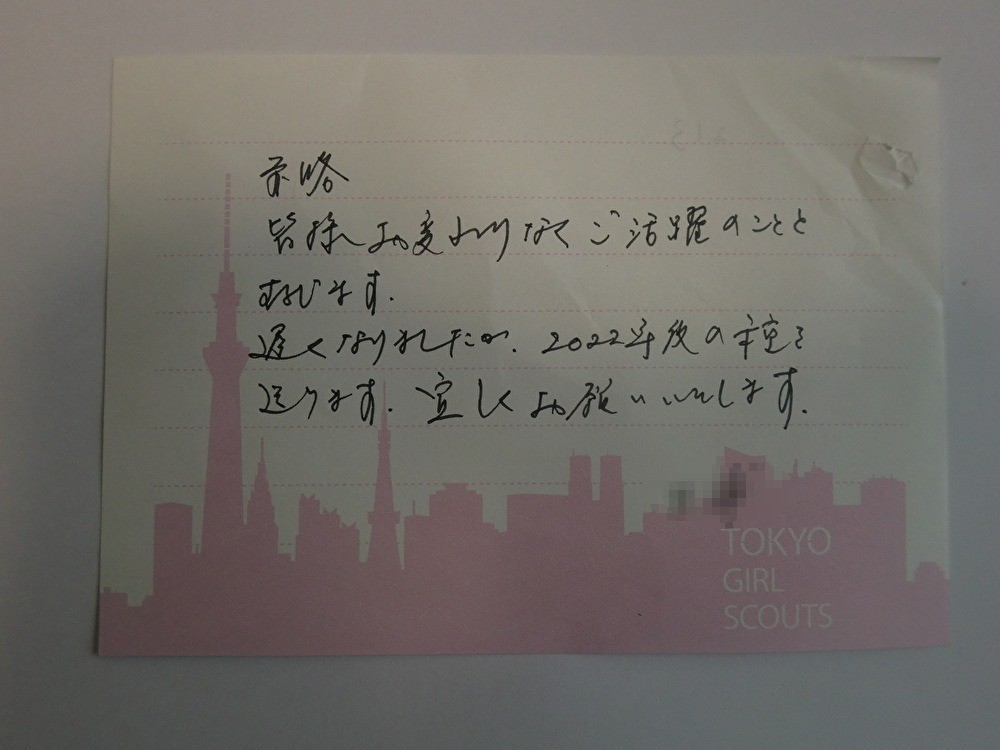 前略
皆様お変わりなくご活躍のことと
存じます。
遅くなりましたが、2022年度の
送ります。宜しくお願いいたします。
TOKYO
GIRL
SCOUTS